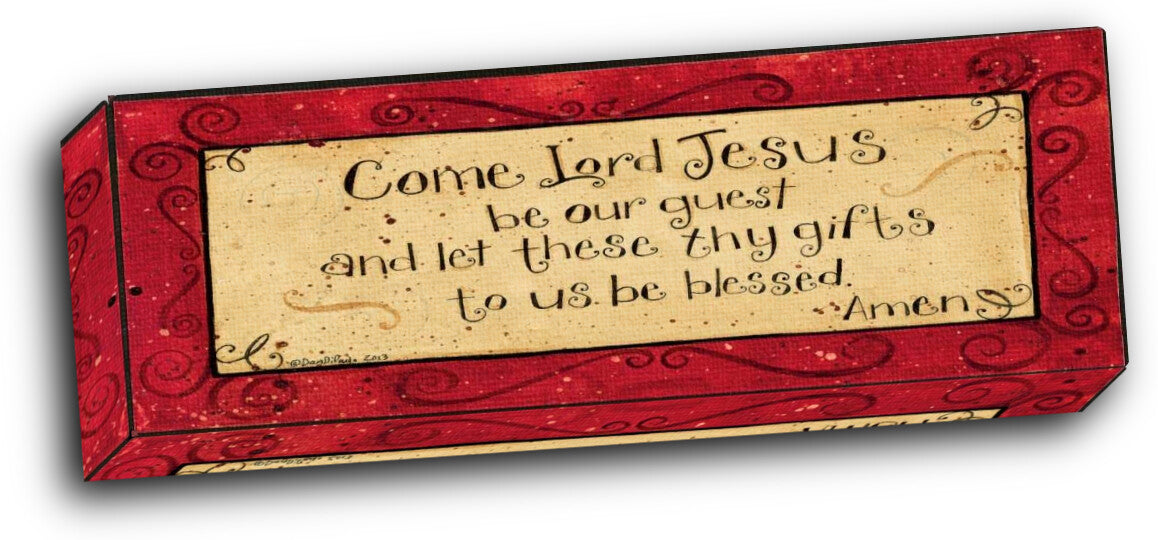 Come Lord Jesus
be our guest
and let these thy gifts
to us be blessed.
Amen
2013